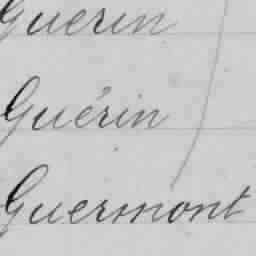 Guerin
Guérin
Guermont